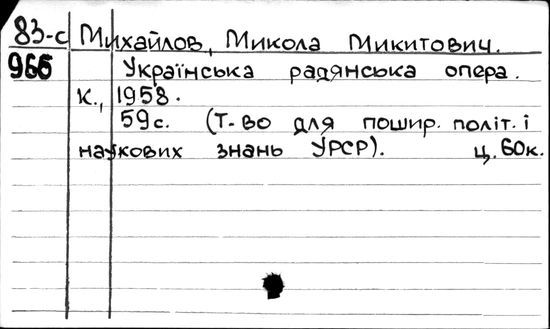 83-с Михайлов, Микола Микитович.
966 Українська радянська опера.
К., 1958.
59с. (Т-во для пошир. політ. і
наукових знань УРСР). ц. 60к.